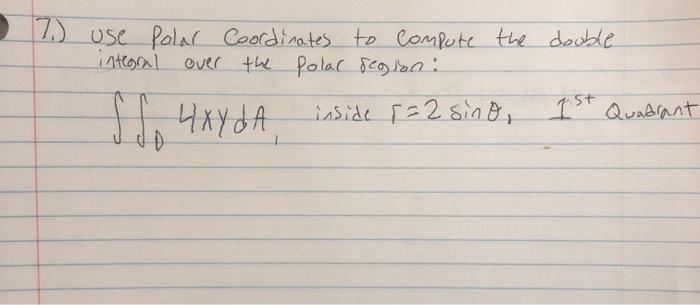 7.) Use Polar Coordinates to Compute the double
integral over the Polar region:
∬_D 4xydA, inside r=2 sinθ, 1st Quadrant